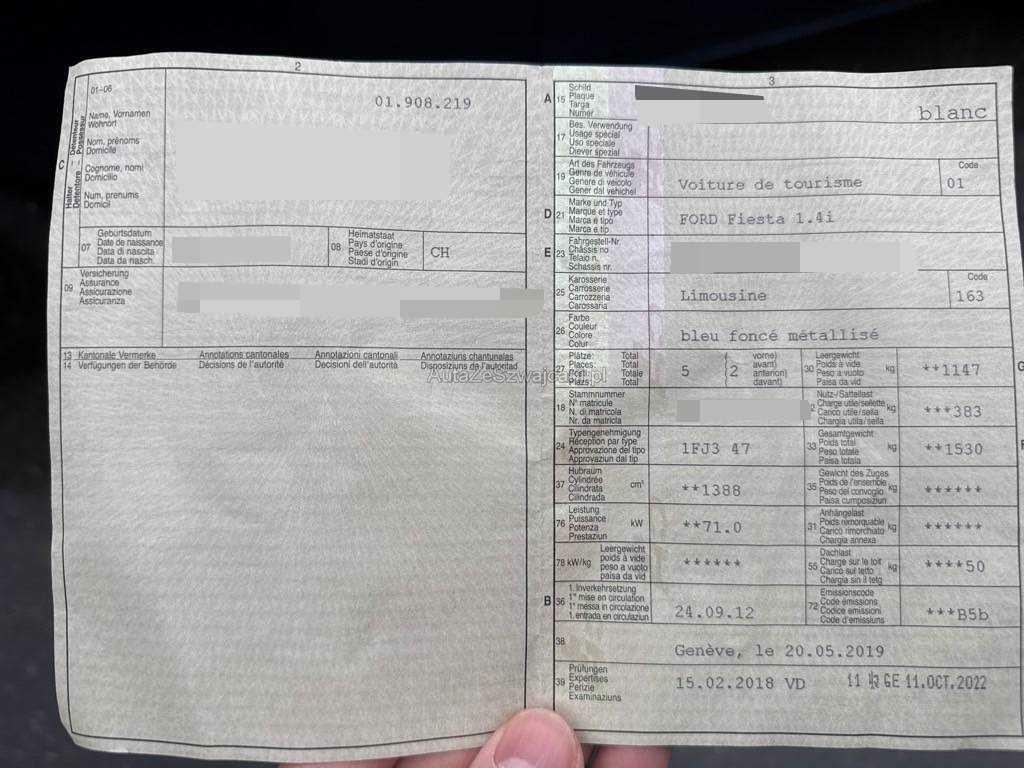 2
01-06
01.908.219
C
Halter Détenteur
Detentore Possessur
Name, Vornamen
Wohnort
Nom, prénoms
Domicile
Cognome, nomi
Domicilio
Num, prenums
Domicil
07
Geburtsdatum
Date de naissance
Data di nascita
Data da nasch.
08
Heimatstaat
Pays d'origine
Paese d'origine
Stadi d'origin
CH
09
Versicherung
Assurance
Assicurazione
Assicuranza
13 Kantonale Vermerke
14 Verfügungen der Behörde
Annotations cantonales
Décisions de l'autorité
Annotazioni cantonali
Decisioni dell'autorità
Annotaziuns chantunalas
Disposiziuns de l'autoritad
AutaZeSzwajcarii.pl
3
A 15
Schild
Plaque
Targa
Numer
blanc
17
Bes. Verwendung
Usage spécial
Uso speciale
Diever spezial
19
Art des Fahrzeugs
Genre de véhicule
Genere di veicolo
Gener dal vehichel
Voiture de tourisme
Code
01
D 21
Marke und Typ
Marque et type
Marca e tipo
Marca e tip
FORD Fiesta 1.4i
E 23
Fahrgestell-Nr.
Châssis no
Telaio n.
Schassis nr.
25
Karosserie
Carrosserie
Carrozzeria
Carossaria
Limousine
Code
163
26
Farbe
Couleur
Colore
Colur
bleu foncé métallisé
27
Plätze: Total
Places: Total
Totale
Plazs: Total
5
2
vorne)
avant)
anteriori)
davant)
30
Leergewicht
Poids à vide
Peso a vuoto
Paisa da vid
kg
**1147
G
18
Stammnummer
N° matricule
N. di matricola
Nr. da matricla
Nutz-/Sattellast
Charge utile/sellette
Carico utile/sella
Chargia utila/sella
kg
***383
24
Typengenehmigung
Réception par type
Approvazione del tipo
Approvaziun dal tip
1FJ3 47
33
Gesamtgewicht
Poids total
Peso totale
Paisa totala
kg
**1530
F
37
Hubraum
Cylindrée
Cilindrata
Cilindrada
cm³
**1388
35
Gewicht des Zuges
Poids de l'ensemble
Peso del convoglio
Paisa cumposiziun
kg
******
76
Leistung
Puissance
Potenza
Prestaziun
kW
**71.0
31
Anhängelast
Poids remorquable
Carico rimorchiato
Chargia annexa
kg
******
78 kW/kg
Leergewicht
poids à vide
peso a vuoto
paisa da vid
******
55
Dachlast
Charge sur le toit
Carico sul tetto
Chargia sin il tetg
kg
****50
B 36
1. Inverkehrsetzung
1re mise en circulation
1a messa in circolazione
1. entrada en circulaziun
24.09.12
72
Emissionscode
Code émissions
Codice emissioni
Code d'emissiuns
***B5b
38
Genève, le 20.05.2019
39
Prüfungen
Expertises
Perizie
Examinaziuns
15.02.2018 VD
GE 11.OCT.2022